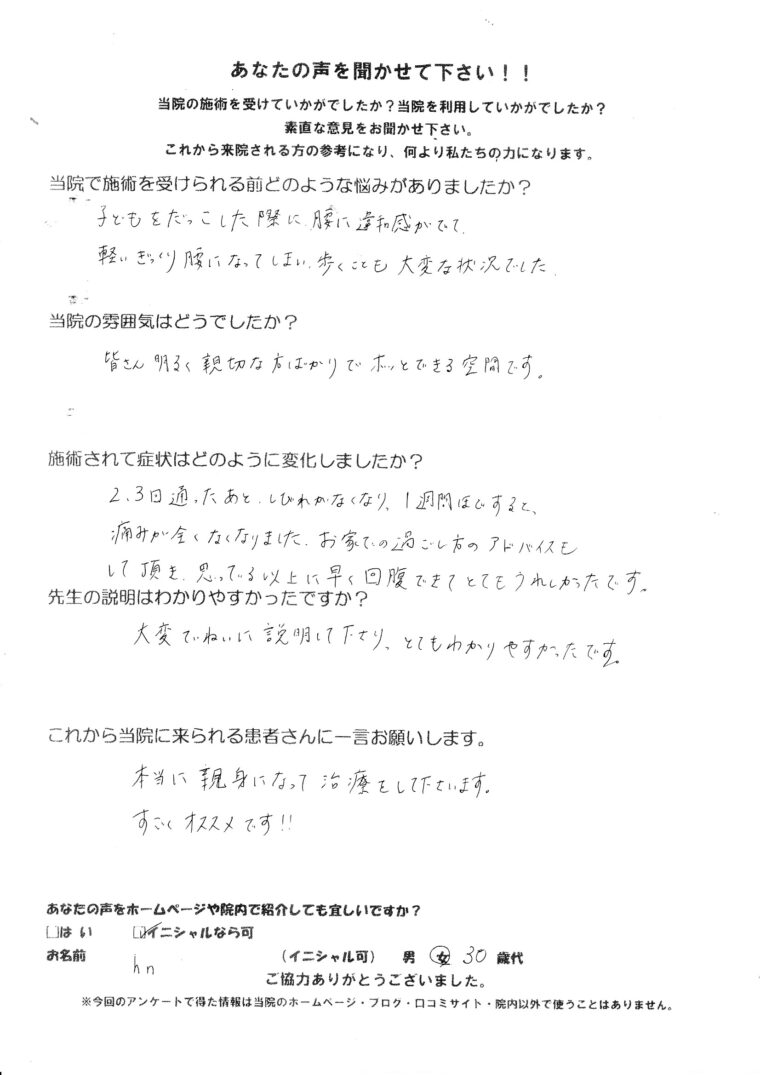 あなたの声を聞かせて下さい！！
当院の施術を受けていかがでしたか？当院を利用していかがでしたか？
素直な意見をお聞かせ下さい。
これから来院される方の参考になり、何より私たちの力になります。
当院で施術を受けられる前どのような悩みがありましたか？
子どもをだっこした際に、腰に違和感がでて、
軽いぎっくり腰になってしまい、歩くことも大変な状況でした。
当院の雰囲気はどうでしたか？
皆さん明るく親切な方ばかりでホッとできる空間です。
施術されて症状はどのように変化しましたか？
2、3日通ったあと、しびれがなくなり、1週間ほどすると、
痛みが全くなくなりました。お家での過ごし方のアドバイスも
して頂き、思っている以上に早く回腹できてとてもうれしかったです。
先生の説明はわかりやすかったですか？
大変ていねいに説明して下さり、とてもわかりやすかったです。
これから当院に来られる患者さんに一言お願いします。
本当に親身になって治療をして下さいます。
すごくオススメです!!
あなたの声をホームページや院内で紹介しても宜しいですか？
□はい ☑イニシャルなら可
お名前 hn （イニシャル可） 男 女 30 歳代
ご協力ありがとうございました。
※今回のアンケートで得た情報は当院のホームページ・ブログ・口コミサイト・院内以外で使うことはありません。